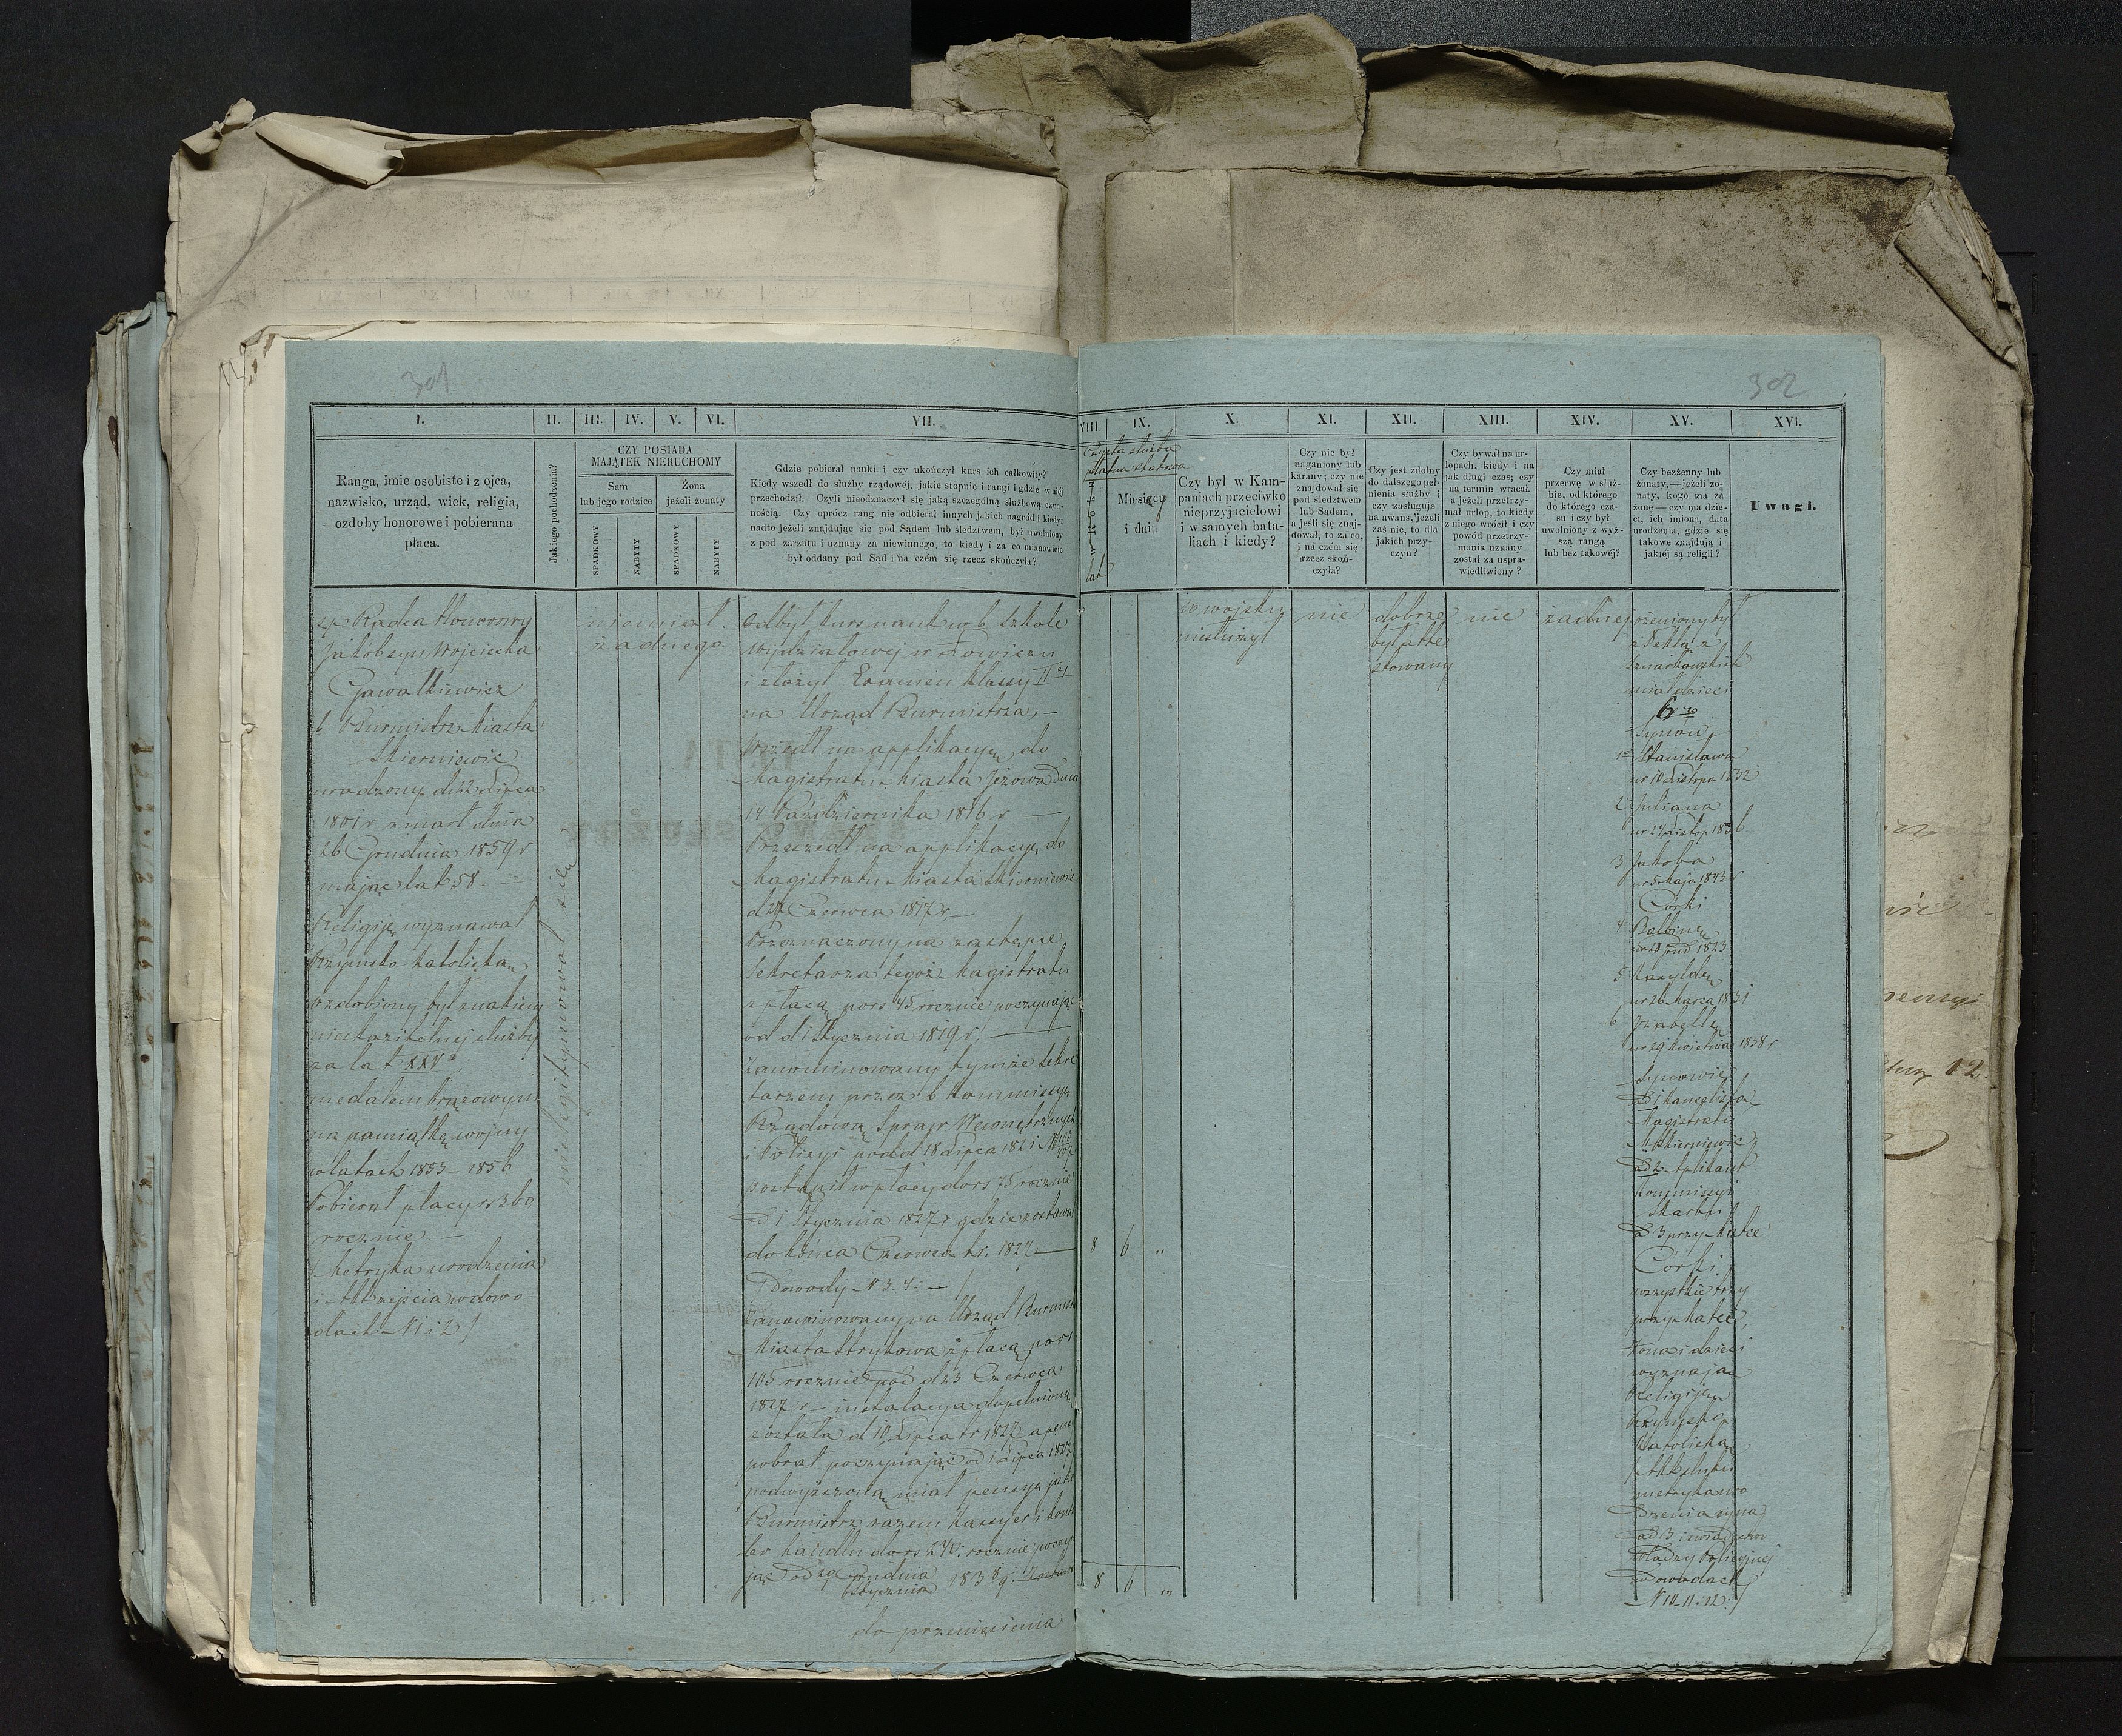 301
302
I.
II.
III.
IV.
V.
VI.
VII.
VIII.
IX.
X.
XI.
XII.
XIII.
XIV.
XV.
XVI.
Ranga, imie osobiste i z ojca,
nazwisko, urząd, wiek, religia,
ozdoby honorowe i pobierana
płaca.
Jakiego pochodzenia?
CZY POSIADA
MAJĄTEK NIERUCHOMY
Sam
lub jego rodzice
Żona
jeżeli żonaty
SPADKOWY
NABYTY
SPADKOWY
NABYTY
Gdzie pobierał nauki i czy ukończył kurs ich całkowity?
Kiedy wszedł do służby rządowéj, jakie stopnie i rangi i gdzie w niéj
przechodził. Czyli nieodznaczył się jaką szczególną służbową czyn-
nością. Czy oprócz rang nie odbierał innych jakich nagród i kiedy;
nadto jeżeli znajdując się pod Sądem lub śledztwem, był uwolniony
z pod zarzutu i uznany za niewinnego, to kiedy i za co mianowicie
był oddany pod Sąd i na czém się rzecz skończyła?
Czysta służba
płatna etatowa
w Roku
lat
Miesięcy
i dni
Czy był w Kam-
paniach przeciwko
nieprzyjacielowi
i w samych bata-
liach i kiedy?
Czy nie był
naganiony lub
karany; czy nie
znajdował się
pod śledztwem
lub Sądem,
a jeśli się znaj-
dował, to za co,
i na czém się
rzecz skoń-
czyła?
Czy jest zdolny
do dalszego peł-
nienia służby i
czy zasługuje
na awans, jeżeli
zaś nie, to dla
jakich przy-
czyn?
Czy bywał na ur-
lopach, kiedy i na
jak długi czas; czy
na termin wracał,
a jeżeli przetrzy-
mał urlop, to kiedy
z niego wrócił i czy
powód przetrzy-
mania uznany
został za uspra-
wiedliwiony?
Czy miał
przerwę w służ-
bie, od którego
do którego cza-
su i czy był
uwolniony z wyż-
szą rangą
lub bez takowéj?
Czy bezżenny lub
żonaty,—jeżeli żo-
naty, kogo ma za
żonę—czy ma dzie-
ci, ich imiona, data
urodzenia, gdzie się
takowe znajdują i
jakiéj są religii?
Uwagi.
Radca Honorowy
Jakób syn Wojciecha
Gawałkiewicz
b Burmistrz Miasta
Skierniewic
urodzony d 12 Lipca
1801 r zmarł dnia
26 Grudnia 1859 r
mając lat 58 —
Religiję wyznawał
Rzymsko Katolicką
ozdobiony był znakiem
nieskazitelnej służby
za lat XXV
medalem brązowym
na pamiątkę wojny
w latach 1853 – 1856
Pobierał płacy rs 360
rocznie —
Metryka urodzenia
i Akt zejścia w dowo-
dach N 1 i 2 /
nielegitymował się
niemiał
żadnego
Odbył kurs nauk w b Szkole
Wydziałowej w Łowiczu
i złożył Examen klassy II ej
na Urząd Burmistrza, —
wszedł na applikacyę do
Magistratu Miasta Jeżowa dnia
14 Października 1816 r —
Przeszedł na applikacyę do
Magistratu Miasta Skierniewic
d 27 Czerwca 1817 r —
Przeznaczony na zastępcę
Sekretarza tegoż Magistratu
z płacą po rs 45 rocznie poczynając
od d 1 Stycznia 1819 r, —
Zanominowany tymże Sekre
tarzem przez b Kommissyę
Rządową Spraw Wewnętrznych
i Policyi pod d 18 Lipca 1821 N
postąpił w płacy do rs 75 rocznie
od 1 Stycznia 1827 r gdzie zostawał
do końca Czerwca t r. 1827 —
Dowody N 3. 4. — /
Zanominowany na Urząd Burmist
Miasta Strykowa z płacą po rs
105 rocznie pod d 23 Czerwca
1827 r — instalacya dopełnioną
została d 10 Lipca t r 1827 a pensyę
pobrał poczynając od 1 Lipca 1827
podwyższoną miał pensyę jako
Burmistrz razem Kassyer i kontro
ler handlu do rs 240. rocznie poczyna
jąc od 29 Grudnia
Stycznia 183 8/9
do przeniesienia
8 6 „
8 6 „
w wojsku
niesłużył
nie
dobrze
był atte
stowany
nie
żadnej
ożeniony był
z Teklą z
miał dzieci
6 ro
Synów
1 Stanisława
ur 10 Listopa 1832
2 Juliana
ur 24 Listop 1836
3 Jakóba
ur 5 Maja 1843 r
Córki
4 Balbinę
1823
5 Kasyldę
ur 26 Marca 1831
6 Izabellę
ur 29 Kwietnia 1838 r
Synowie
ad 1 kancelista
Magistratu
M Skierniewic
ad 2 Aplikant
Kommissyi
Skarbu
ad 3 przy Matce
Córki
wszystkie trzy
przy Matce,
Żona i dzieci
wyznają
Religiję
Rzymsko
Katolicką
/ Akt ślubu
metryka uro
dzenia syna
ad 3 i świadectwo
Władzy Policyjnej
w dowodach
N 10 – 11 i 12. /